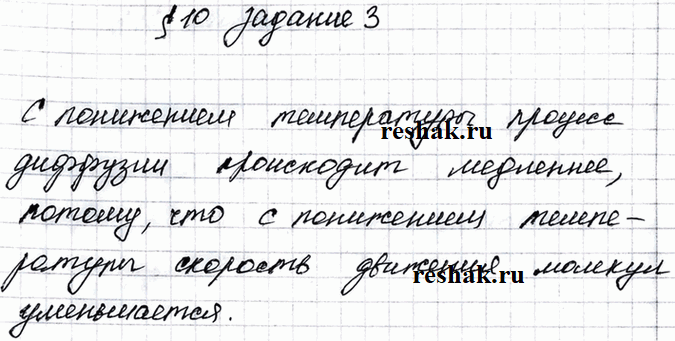 § 10 Задание 3
С понижением температуры процесс
reshak.ru
диффузии происходит медленнее,
потому, что с понижением темпе-
ратуры скорость движения молекул
reshak.ru
уменьшается.